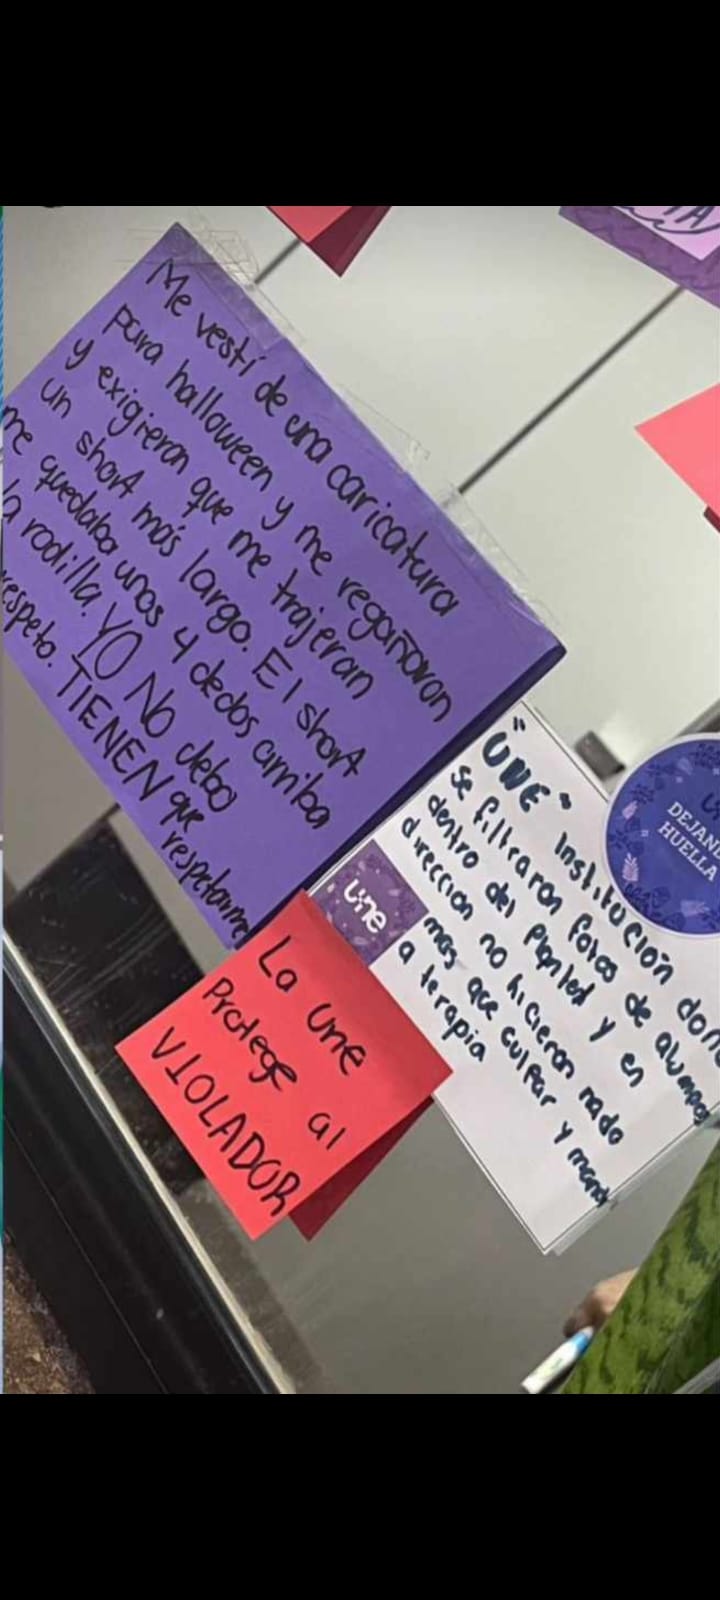 Me vestí de una caricatura
para halloween y me regañaron
y exigieron que me trajeran
un short más largo. El short
me quedaba unos 4 dedos arriba
la rodilla. YO NO debo
respeto. TIENEN que
respetarme
"UNE" Institución
se filtraron fotos de alumnas
dentro del plantel y en
dirección no hicieron nada
más que culpar y mandar
a terapia
une
La une
Protege al
VIOLADOR
HUELLA